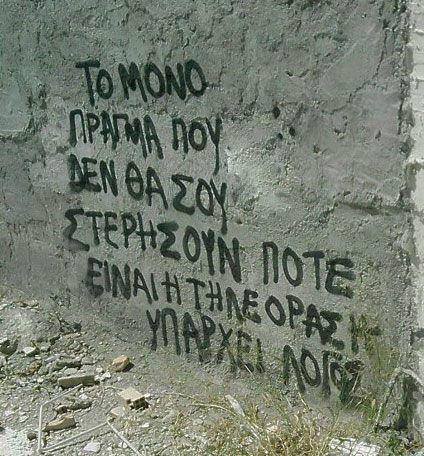 ΤΟ ΜΟΝΟ
ΠΡΑΓΜΑ ΠΟΥ
ΔΕΝ ΘΑ ΣΟΥ
ΣΤΕΡΗΣΟΥΝ ΠΟΤΕ
ΕΙΝΑΙ Η ΤΗΛΕΟΡΑΣΗ
ΥΠΑΡΧΕΙ ΛΟΓΟΣ